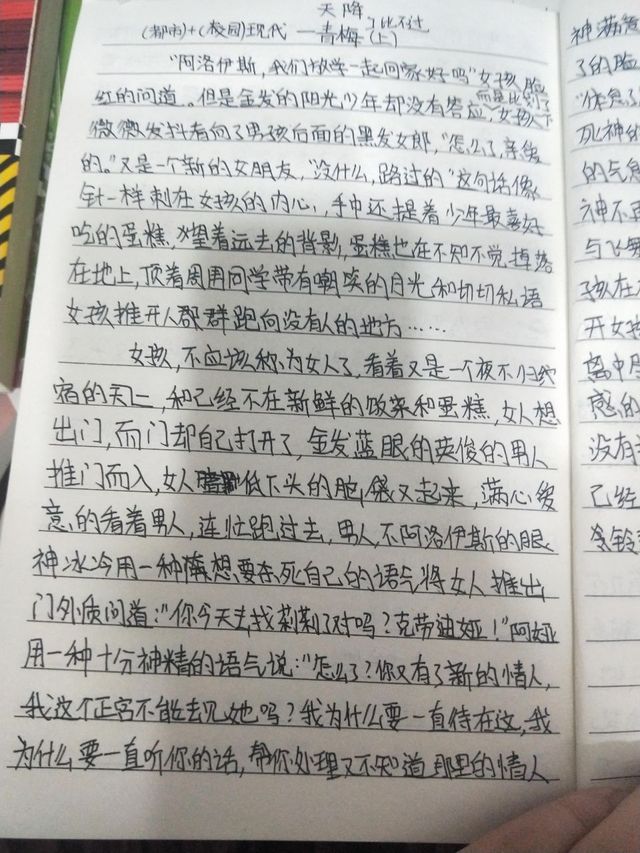 天降
(都市)+(校园)现代 — 青梅 了比不过 (上)
"阿洛伊斯,我们放学一起回家好吗"女孩脸
红的问道。但是金发的阳光少年却没有答应,女孩
而是比划了下
微微发抖看向了男孩后面的黑发女郎,"怎么了,亲爱
的。"又是一个新的女朋友,"没什么,路过的"这句话像
针一样刺在女孩的内心,手中还提着少年最喜好
吃的蛋糕,望着远去的背影,蛋糕也在不知不觉掉落
在地上,顶着周围同学带有嘲笑的目光和切切私语
女孩推开人群跑向没有人的地方……
女孩,不应该称为女人了,看着又是一个夜不归
宿的天二,和已经不在新鲜的饭菜和蛋糕,女人想
出门,而门却自己打开了,金发蓝眼的英俊的男人
推门而入,女人低下头的脸又起来,满心
意的看着男人,连忙跑过去,男人,不阿洛伊斯的眼
神冰冷用一种想要冻死自己的语气将女人推出
门外质问道:"你今天去找莉莉了对吗?克劳迪娅!"阿娅
用一种十分神精的语气说:"怎么了?你又有了新的情人,
我这个正宫不能去见她吗?我为什么要一直待在这,我
为什么要一直听你的话,帮你处理又不知道那里的情人
神
了的脸
死神
的气
神不
与飞
孩在
开女
离中
感的
没有
已经